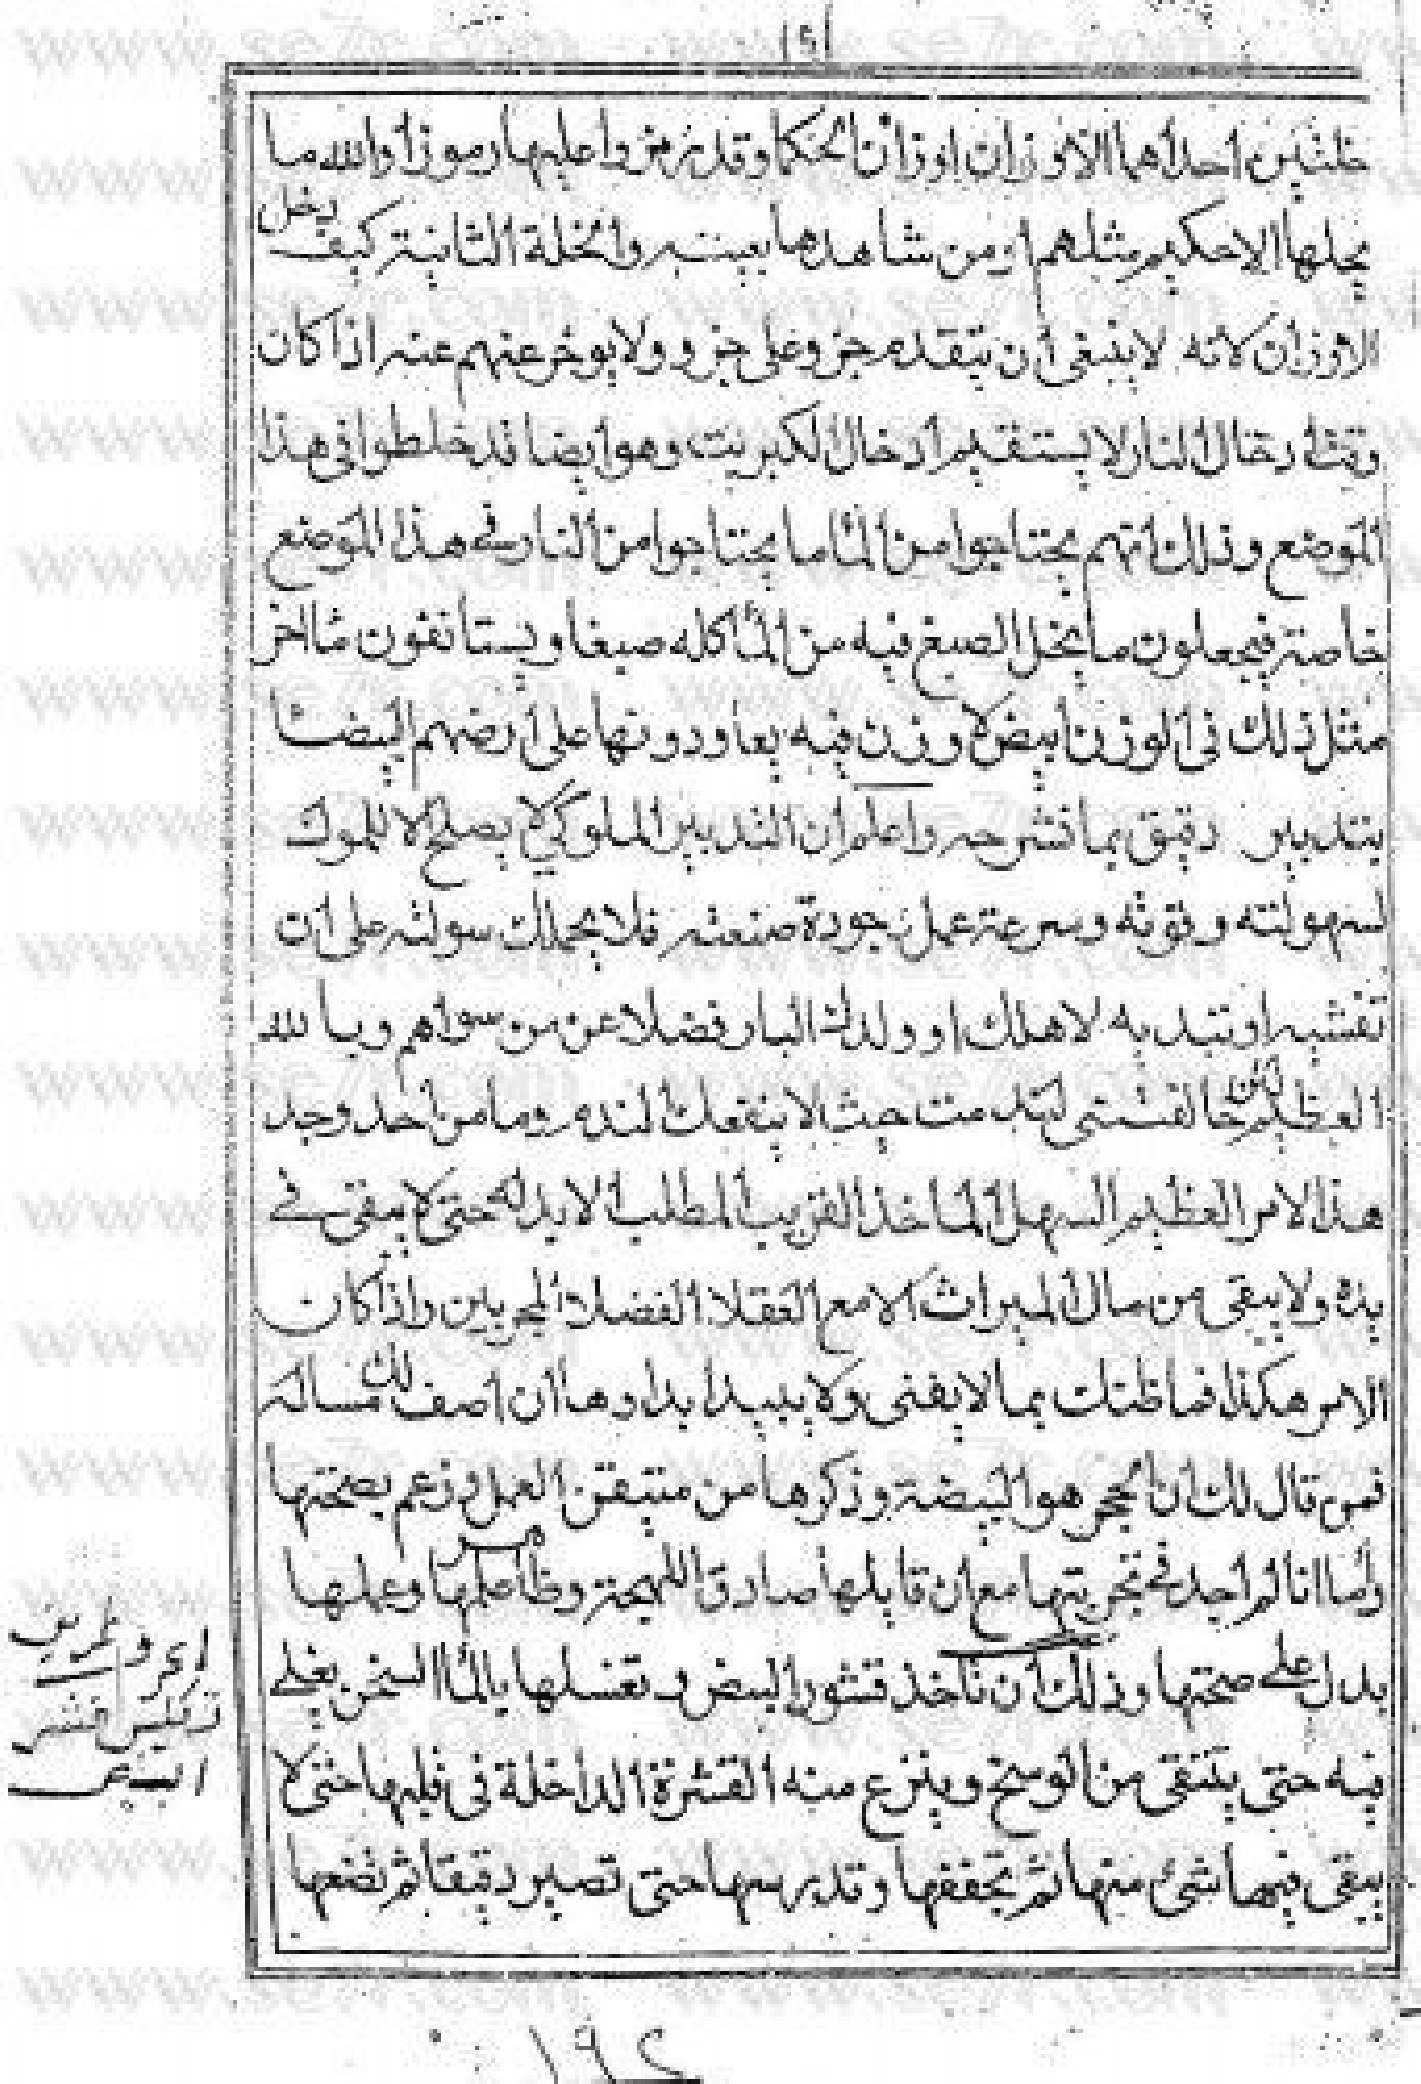 خلتين احداهما الاوزان اوزان الحكما وقد رمزوا عليها رموزا والله ما
يحلها الا حكيم مثلهم او من شاهدها بعينه والخلة الثانية كيف يدخل
الاوزان لانه لا ينبغى ان يتقدم جزو على جزو ولا يوخر عنهم عنه اذا كان
وقت ادخال النار لا يستقيم ادخال الكبريت وهو ايضا قد خلطوا فى هذا
الموضع وذلك انهم يحتاجوا من الما ما يحتاجوا من النار فى هذا الموضع
خاصة فيجعلون ما يخل الصبغ فيه من الما كله صبغا ويستانفون ما اخر
مثل ذلك فى الوزن ابيض لا وزن فيه يعاودونها على ارضهم البيضا
بتدبير دقيق بما نشرحه واعلم ان التدبير الملوكى لا يصلح الا للملوك
لسهولته وقوته وسرعة عمل جودة صنعته فلا يحملك سولته على ان
تفشيه او تبديه لاهلك او ولدك البار فضلا عن من سواهم وبالله
العظيم لئن خالفتنى لتندمت حيث لا ينفعك الندم وما من احد وجد
هذا الامر العظيم السهل الماخذ القريب المطلب الا بذله حتى لا يبقى فى
يده ولا يبقى من مال الميراث الا مع العقلا الفضلا المجربين واذا كان
الامر هكذا فما ظنك بما لا يفنى ولا يبيد ابدا وها ان اصف لك مسالة
فمن قال لك ان الحجر هو البيضة وذكرها من متيقن العمل وزعم بصحتها
واما انا لم اجد فى تجربتها مع ان قايلها صادق اللهجة وعملها
يدل على صحتها وذلك ان تاخذ قشور البيض وتغسلها بالما السخن يغلى
فيه حتى ينتقى من الوسخ وينزع منه القشرة الداخلة فى قلبها حتى لا
يبقى فيها شئ منها ثم تجففها وتدرسها حتى تصير دقيقا ثم تضعها
البيض
١٩٢